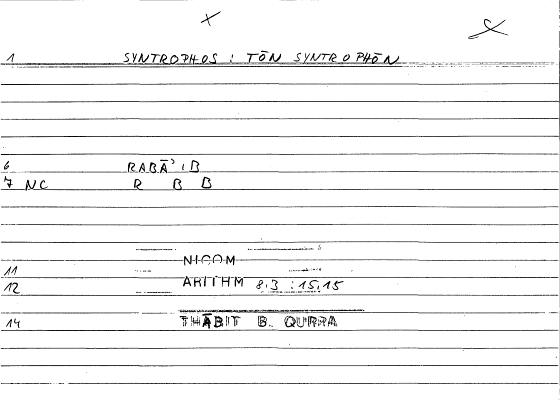 1 SYNTROPHOS : TŌN SYNTROPHŌN
6 RABĀʾIB
7 NC R B B
NICOM
11
12 ARITHM 8,3 : 15,15
14 THĀBIT B. QURRA